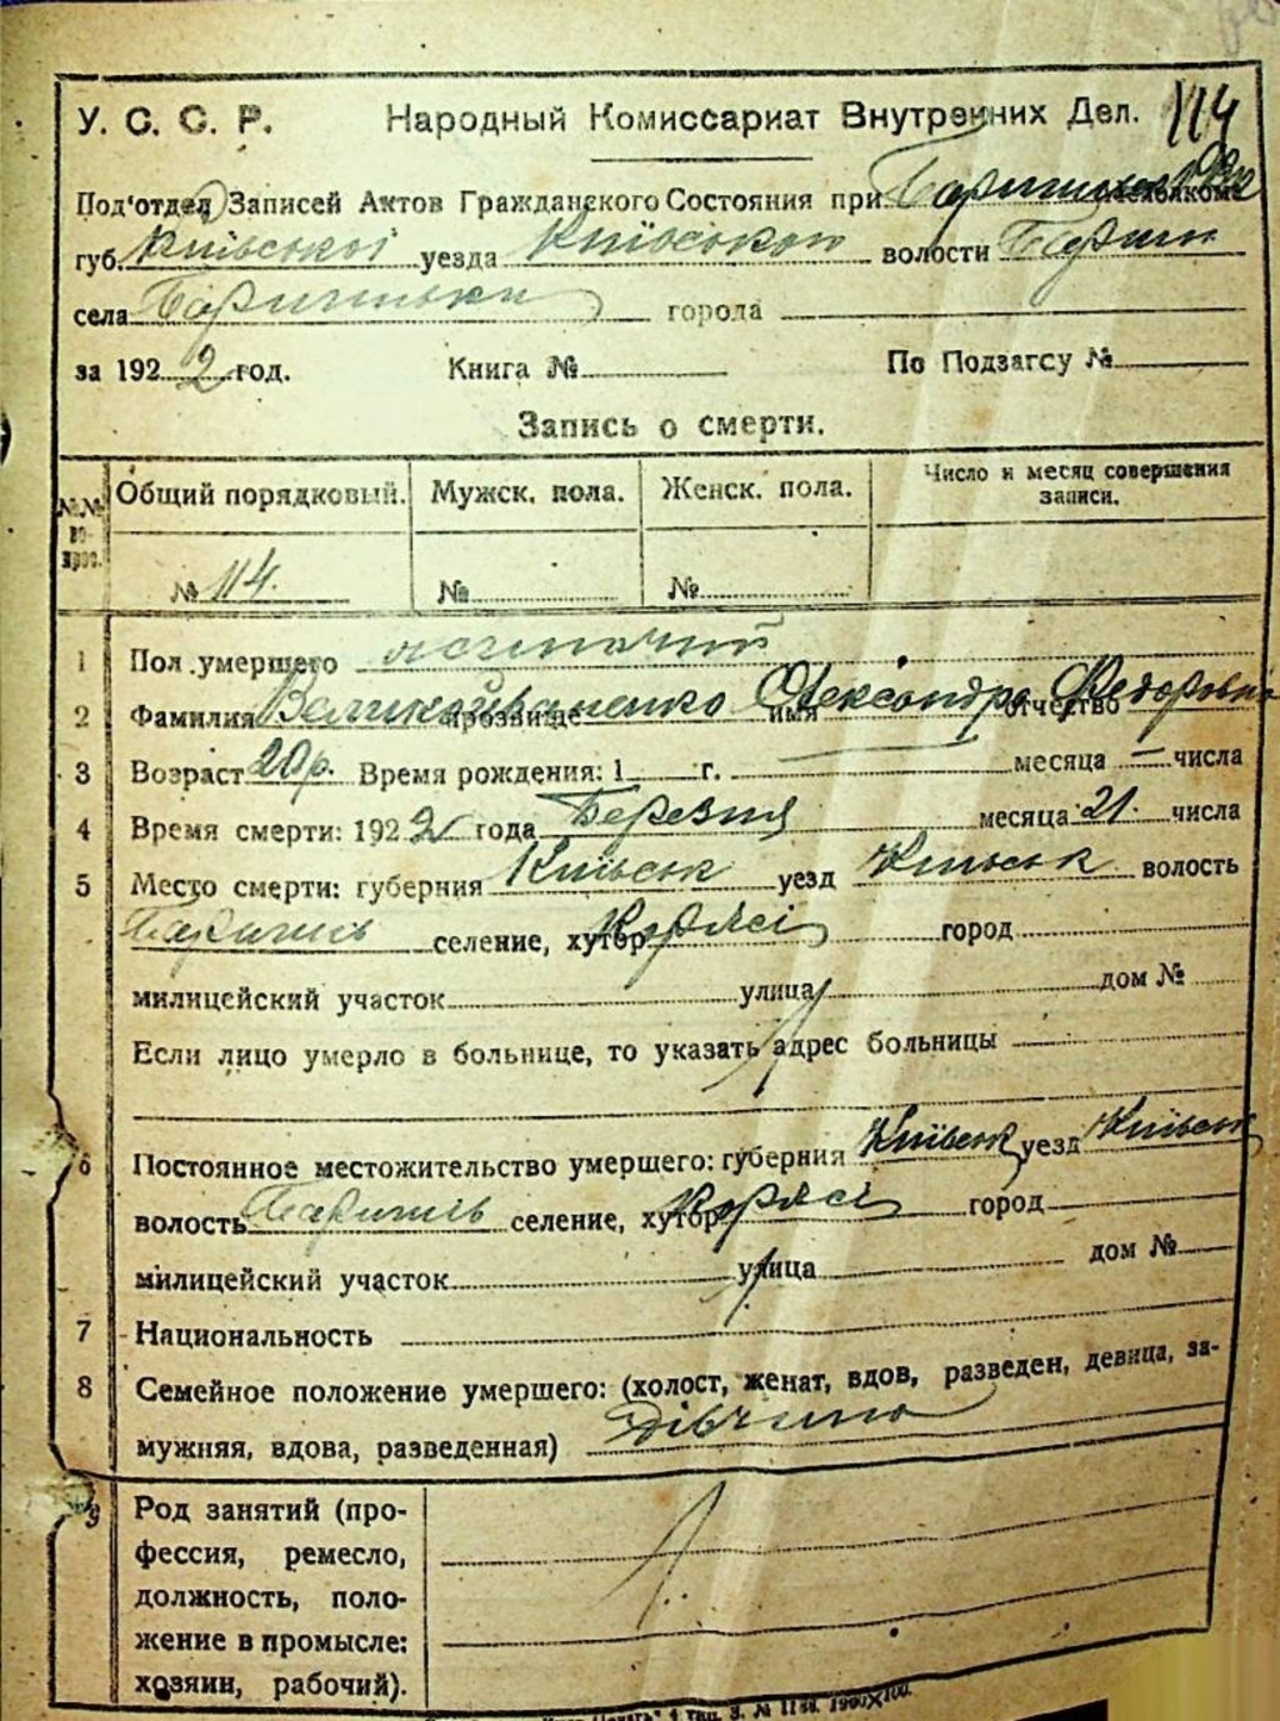 114
У. С. С. Р. Народный Комиссариат Внутренних Дел.
Под'отдел Записей Актов Гражданского Состояния при
губ. Київської уезда Київського волости Бариш
села Баришівки города
за 1922 год. Книга № По Подзагсу №
Запись о смерти.
№№ во- прос. Общий порядковый. Мужск. пола. Женск. пола. Число и месяц совершения записи.
№ 114. № №
1 Пол умершего
2 Фамилия Великоіваненко прозвище имя Олександра отчество Федоровна
3 Возраст 20 р. Время рождения: 1 г. — месяца — числа
4 Время смерти: 1922 года Березня месяца 21. числа
5 Место смерти: губерния Київськ уезд Київськ волость
Баришів селение, хутор Коржі город
милицейский участок улица дом №
Если лицо умерло в больнице, то указать адрес больницы
6 Постоянное местожительство умершего: губерния Київськ уезд Київськ
волость Баришів селение, хутор Коржі город
милицейский участок улица дом №
7 Национальность
8 Семейное положение умершего: (холост, женат, вдов, разведен, девица, за-
мужняя, вдова, разведенная) дівчина
9 Род занятий (про-
фессия, ремесло,
должность, поло-
жение в промысле:
хозяин, рабочий).